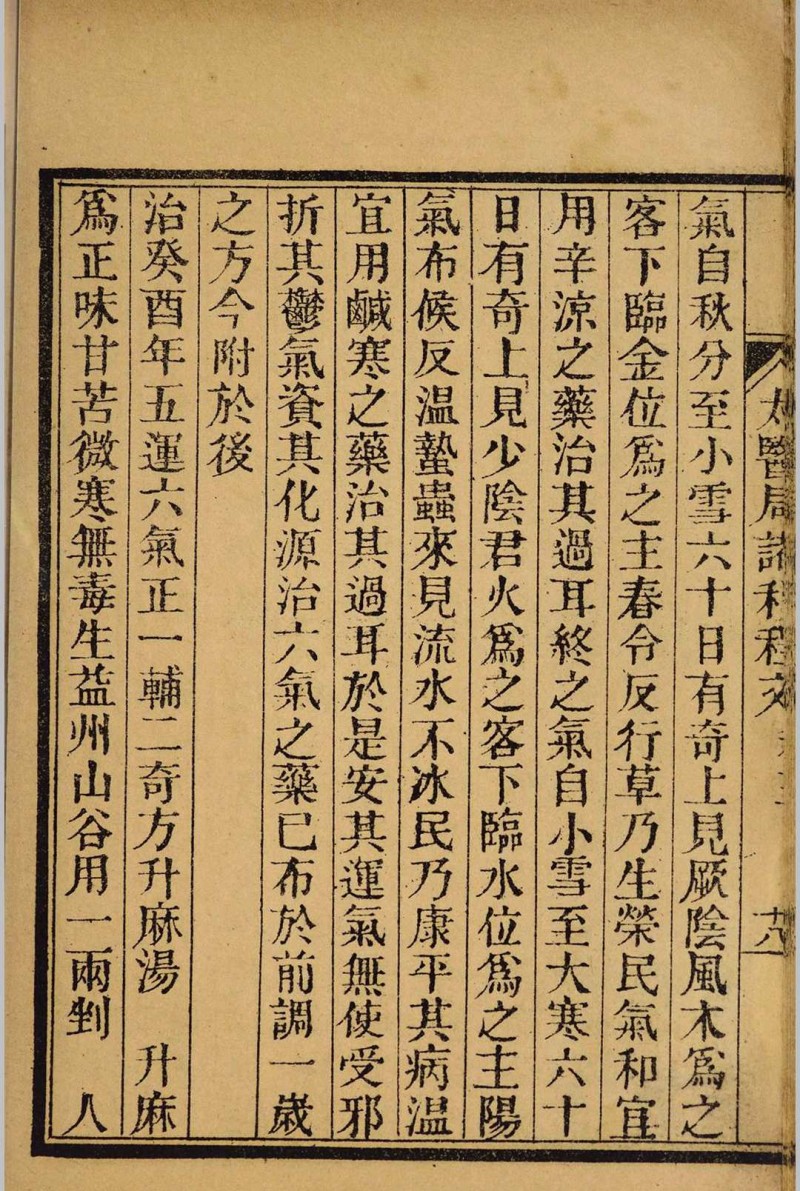 太醫局諸科程文
氣自秋分至小雪六十日有奇上見厥陰風木爲之
客下臨金位爲之主春令反行草乃生榮民氣和宜
用辛涼之藥治其過耳終之氣自小雪至大寒六十
日有奇上見少陰君火爲之客下臨水位爲之主陽
氣布候反温蟄蟲來見流水不冰民乃康平其病温
宜用鹹寒之藥治其過耳於是安其運氣無使受邪
折其鬱氣資其化源治六氣之藥已布於前調一歲
之方今附於後
治癸酉年五運六氣正一輔二奇方升麻湯　升麻
爲正味甘苦微寒無毒生益州山谷用一兩剉　人